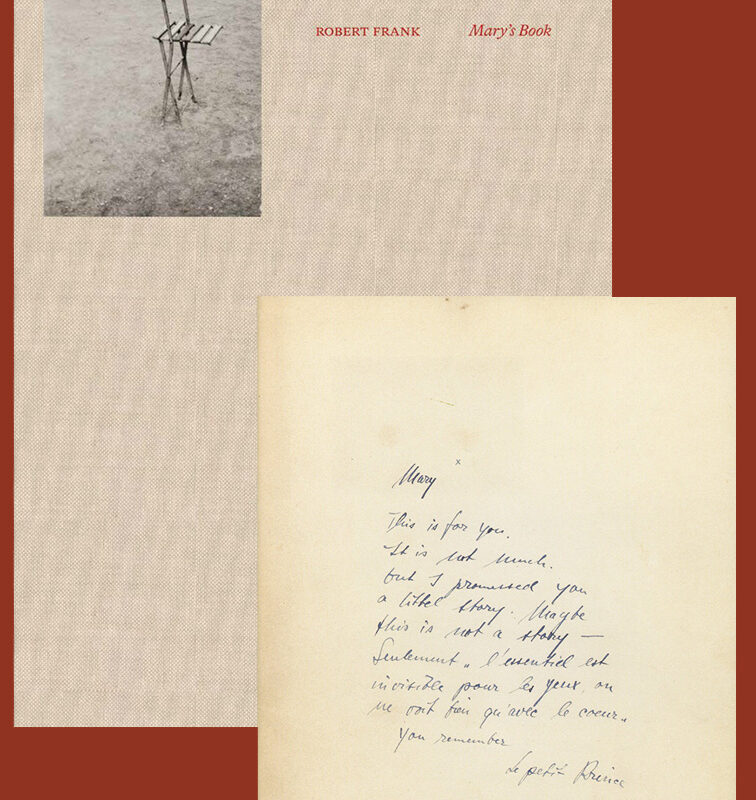 ROBERT FRANK Mary's Book
x
Mary
This is for you.
It is not much.
but I promessed you
a littel story. Maybe
this is not a story —
Seulement „ l'essentiel est
invisible pour les yeux, on
ne voit bien qu'avec le coeur„
You remember
Le petit Prince